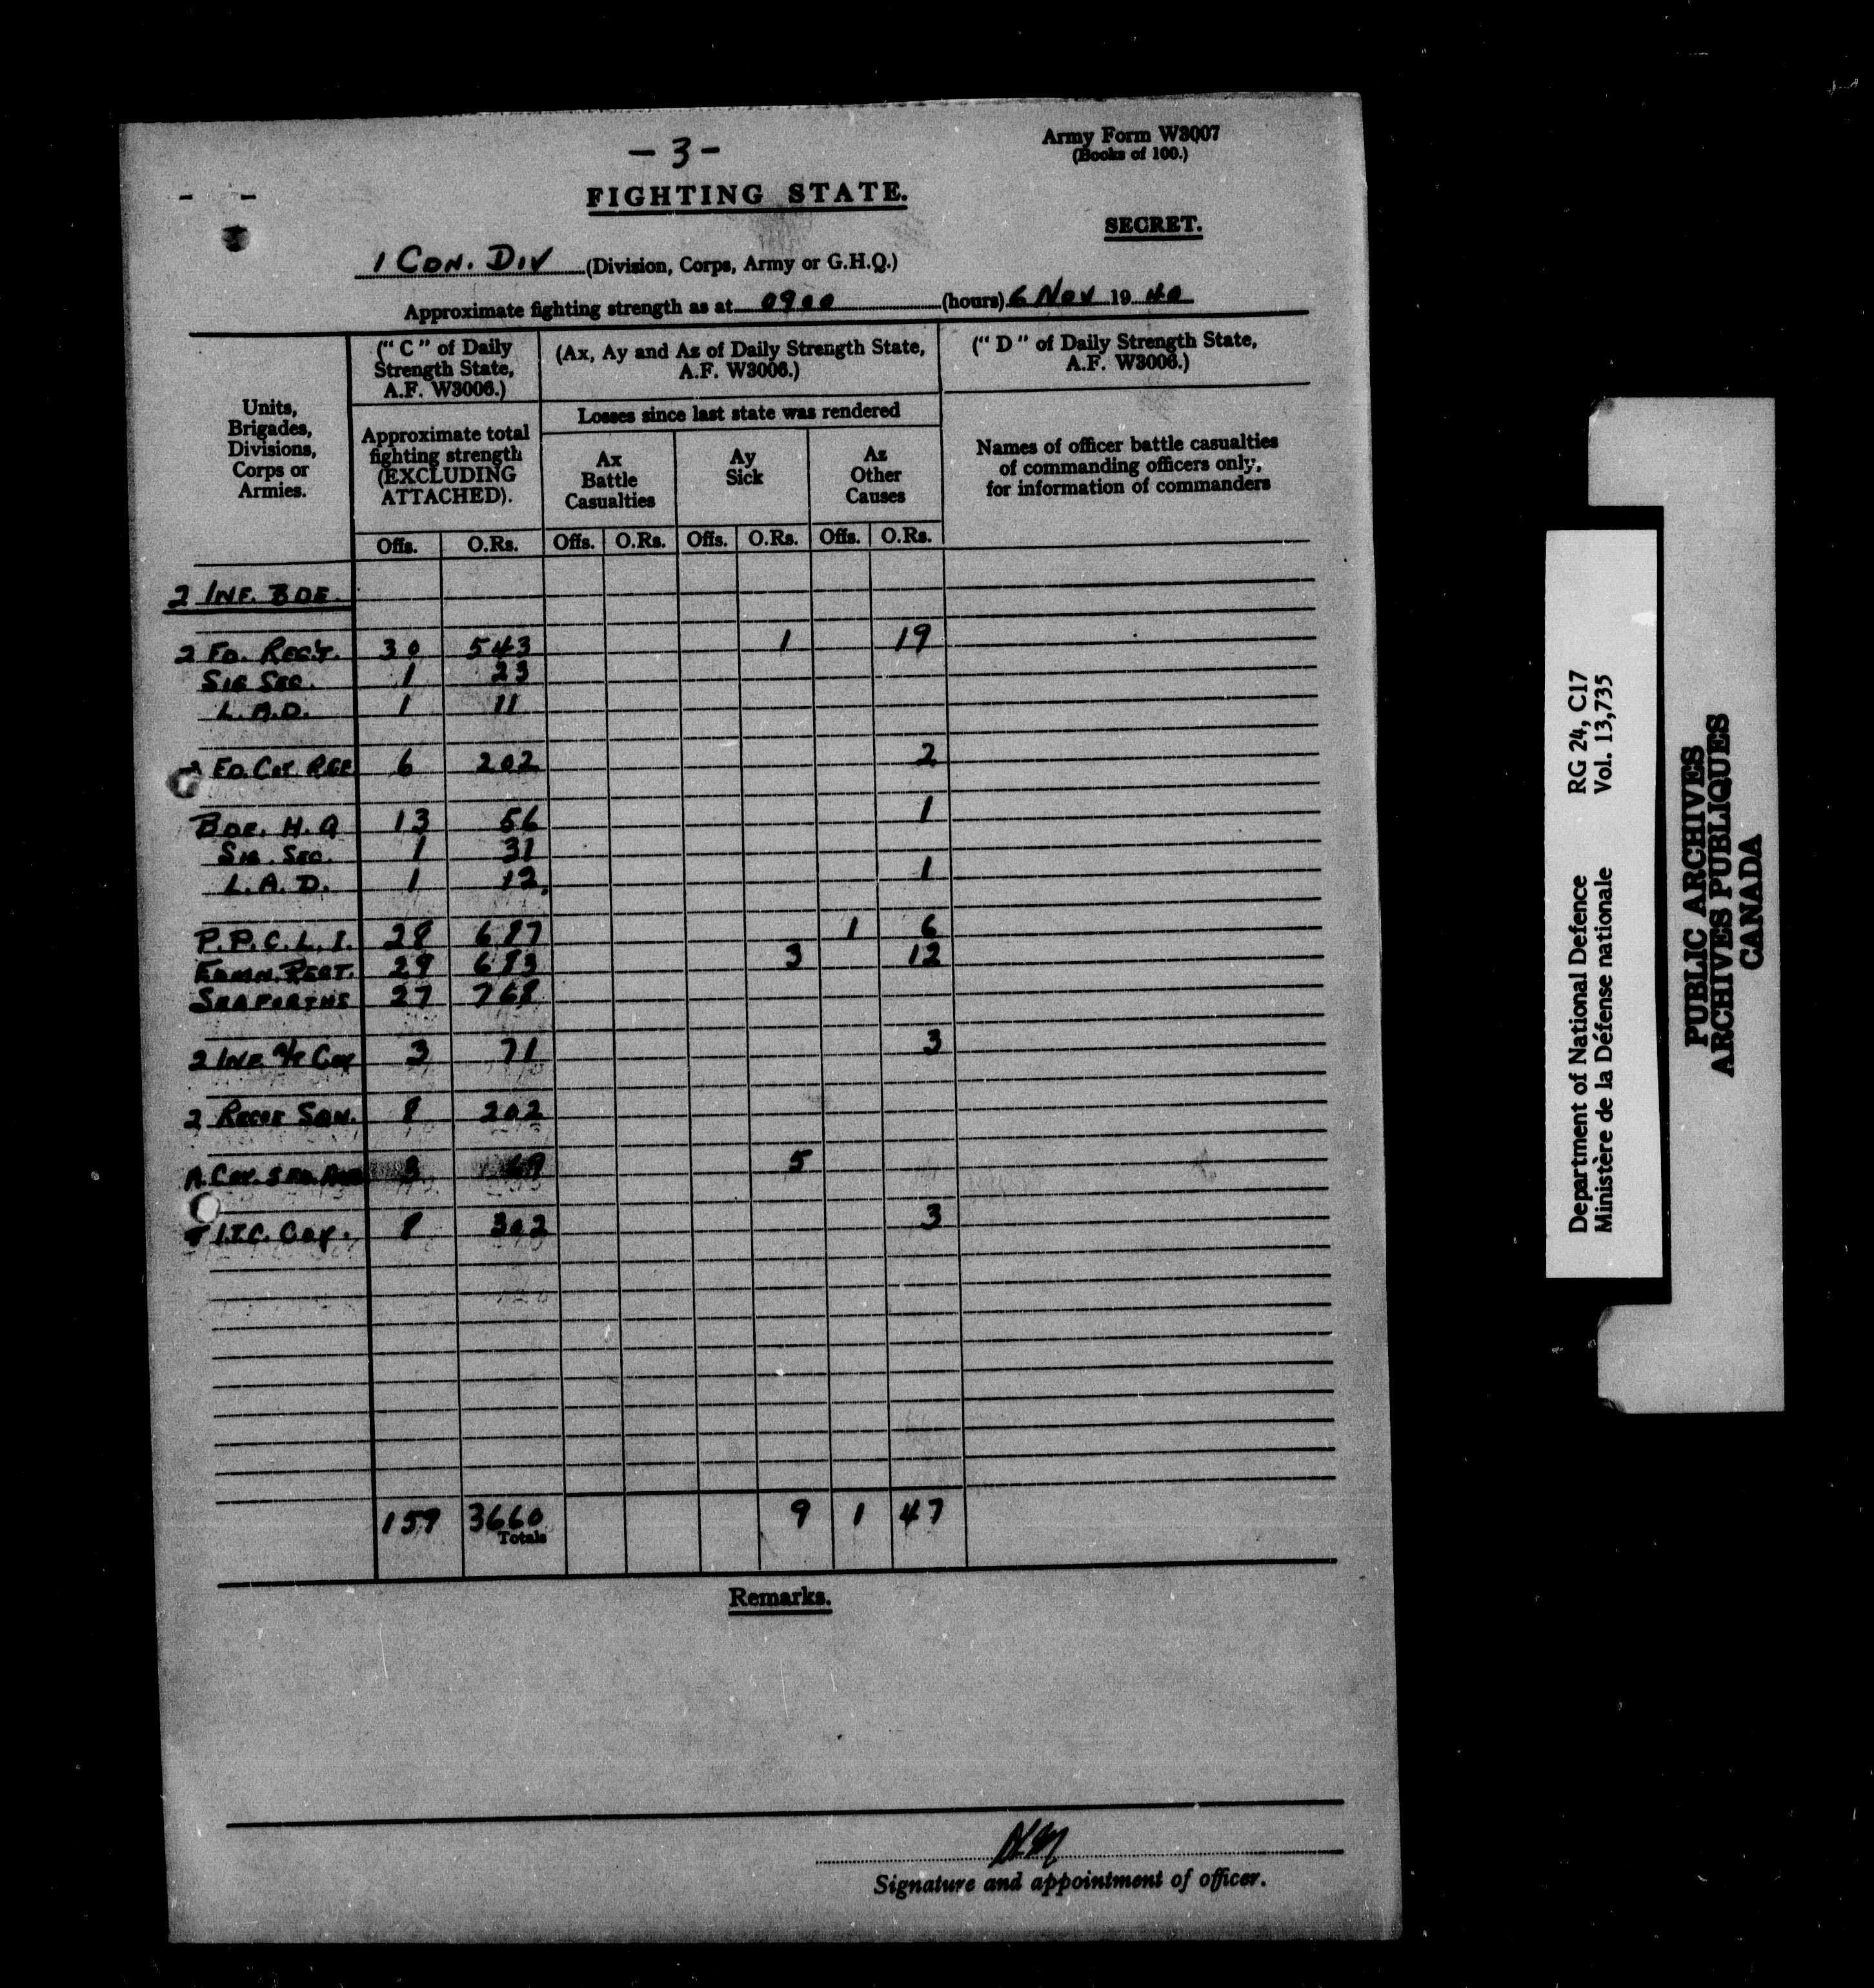 - 3 -
Army Form W3007
(Books of 100.)
FIGHTING STATE.
SECRET.
1 CDN. DIV (Division, Corps, Army or G.H.Q.)
Approximate fighting strength as at 0900 (hours) 6 NOV 19 40
Units,
Brigades,
Divisions,
Corps or
Armies.
("C" of Daily
Strength State,
A.F. W3006.)
Approximate total
fighting strength
(EXCLUDING
ATTACHED).
(Ax, Ay and Az of Daily Strength State,
A.F. W3006.)
Losses since last state was rendered
Ax
Battle
Casualties
Ay
Sick
Az
Other
Causes
("D" of Daily Strength State,
A.F. W3006.)
Names of officer battle casualties
of commanding officers only,
for information of commanders
Offs. O.Rs. Offs. O.Rs. Offs. O.Rs. Offs. O.Rs.
2 INF. BDE.
2 FD. REG'T. 30 543 1 19
SIG SEC. 1 23
L.A.D. 1 11
FD. COY RCE 6 202 2
BDE. H.Q 13 56 1
SIG. SEC. 1 31
L.A.D. 1 12 1
P.P.C.L.I. 28 687 1 6
EDMN. REGT. 29 683 3 12
SEAFORTHS 27 768
2 INF. A/T COY 3 71 3
2 RECCE SQN. 8 202
A. COY. 5 FD. AMB 3 69 5
I.T.C. COY. 8 302 3
159 3660 9 1 47
Totals
Remarks.
Signature and appointment of officer.
Department of National Defence RG 24, C17
Ministère de la Défense nationale Vol. 13,735
PUBLIC ARCHIVES
ARCHIVES PUBLIQUES
CANADA